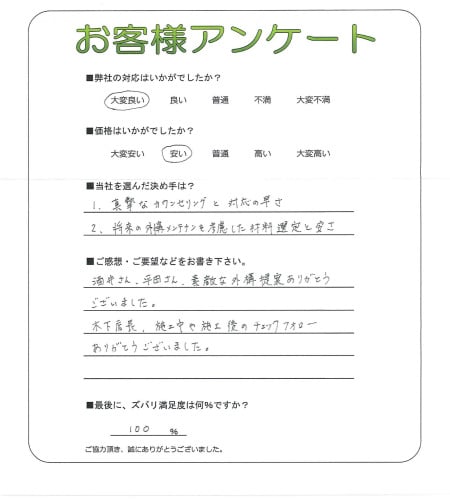 お客様アンケート
■弊社の対応はいかがでしたか？
大変良い 良い 普通 不満 大変不満
■価格はいかがでしたか？
大変安い 安い 普通 高い 大変高い
■当社を選んだ決め手は？
1、真摯なカウンセリングと対応の早さ
2、将来の外構メンテナンスを考慮した材料選定と安さ
■ご感想・ご要望などをお書き下さい。
酒井さん、平田さん、素敵な外構提案ありがとう
ございました。
木下店長、施工中や施工後のチェックフォロー
ありがとうございました。
■最後に、ズバリ満足度は何%ですか？
100 %
ご協力頂き、誠にありがとうございました。